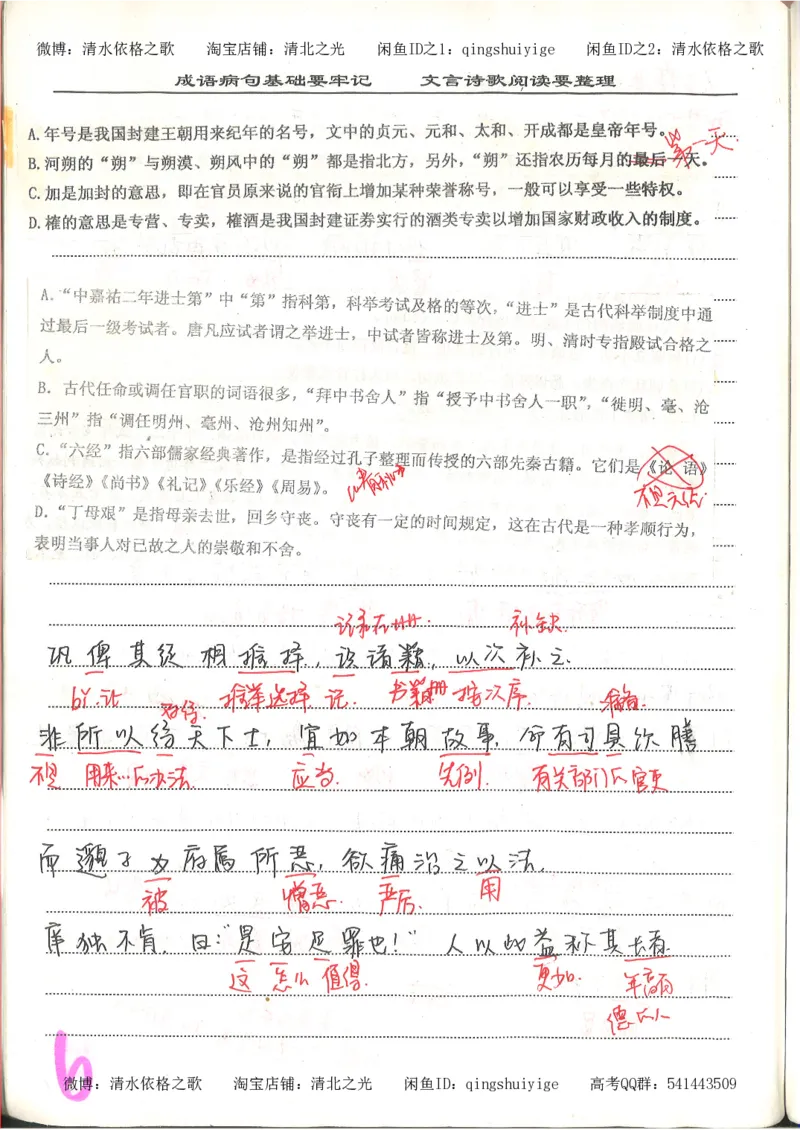 微博：清水依格之歌 淘宝店铺：清北之光 闲鱼ID之1：qingshuiyige 闲鱼ID之2：清水依格之歌
成语病句基础要牢记 文言诗歌阅读要整理
A.年号是我国封建王朝用来纪年的名号，文中的贞元、元和、太和、开成都是皇帝年号。
第一天
B.河朔的“朔”与朔漠、朔风中的“朔”都是指北方，另外，“朔”还指农历每月的最后一天。
C.加是加封的意思，即在官员原来说的官衔上增加某种荣誉称号，一般可以享受一些特权。
D.榷的意思是专营、专卖，榷酒是我国封建证券实行的酒类专卖以增加国家财政收入的制度。
A.“中嘉祐二年进士第”中“第”指科第，科举考试及格的等次，“进士”是古代科举制度中通
过最后一级考试者。唐凡应试者谓之举进士，中试者皆称进士及第。明、清时专指殿试合格之
人。
B.古代任命或调任官职的词语很多，“拜中书舍人”指“授予中书舍人一职”，“徙明、亳、沧
三州”指“调任明州、亳州、沧州知州”。
C.“六经”指六部儒家经典著作，是指经过孔子整理而传授的六部先秦古籍。它们是《论语》
《诗经》《尚书》《礼记》《乐经》《周易》。
D.“丁母艰”是指母亲去世，回乡守丧。守丧有一定的时间规定，这在古代是一种孝顺行为，
表明当事人对已故之人的崇敬和不舍。
记录在册. 补缺.
巩俾其徒相推择，识诸籍，以次补之.
让 推举选择 记. 书籍册 按次序.
对待. 准备.
非所以待天下士，宜如本朝故事，命有司具饮膳
不是 用来…的办法. 应当. 先例. 有关部门的官吏
而邈子为府属所恶，欲痛治之以法.
被 憎恶. 严厉. 用
庠独不肯，曰：“是安足罪也！”人以此益称其长者.
这 怎么 值得. 更加. 年高有
德的人
6
微博：清水依格之歌 淘宝店铺：清北之光 闲鱼ID：qingshuiyige 高考QQ群：541443509